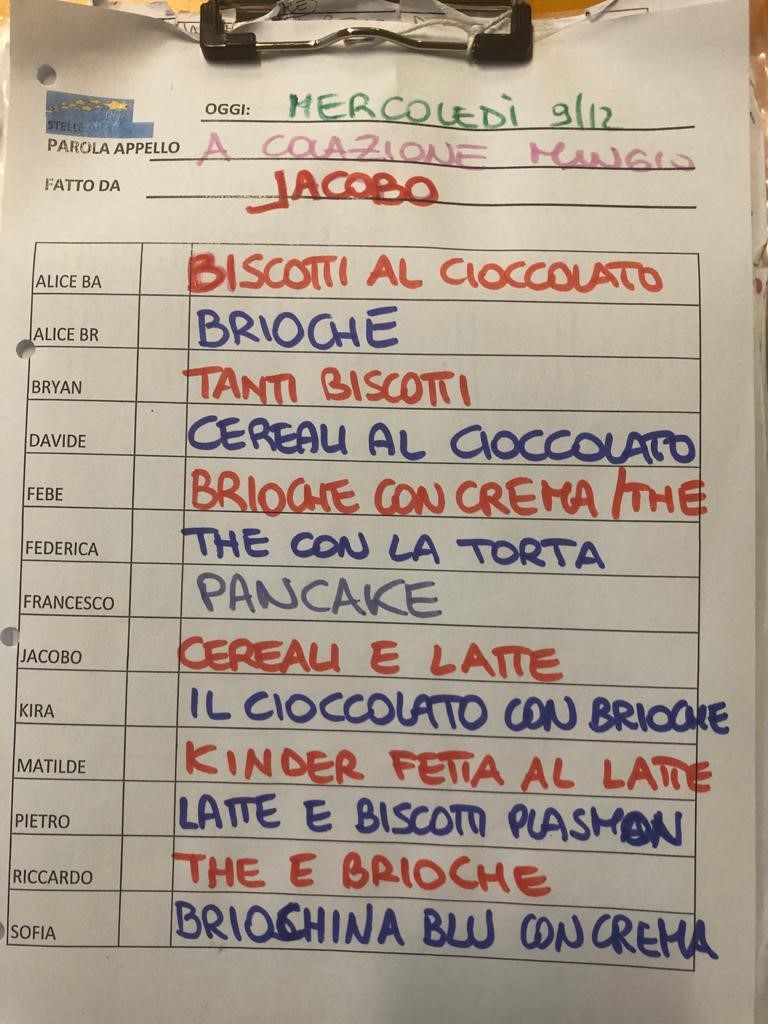 OGGI: MERCOLEDÌ 9/12
STELLE
PAROLA APPELLO A COLAZIONE MANGIO
FATTO DA JACOBO
ALICE BA BISCOTTI AL CIOCCOLATO
ALICE BR BRIOCHE
BRYAN TANTI BISCOTTI
DAVIDE CEREALI AL CIOCCOLATO
FEBE BRIOCHE CON CREMA /THE
FEDERICA THE CON LA TORTA
FRANCESCO PANCAKE
JACOBO CEREALI E LATTE
KIRA IL CIOCCOLATO CON BRIOCHE
MATILDE KINDER FETTA AL LATTE
PIETRO LATTE E BISCOTTI PLASMON
RICCARDO THE E BRIOCHE
SOFIA BRIOCHINA BLU CON CREMA